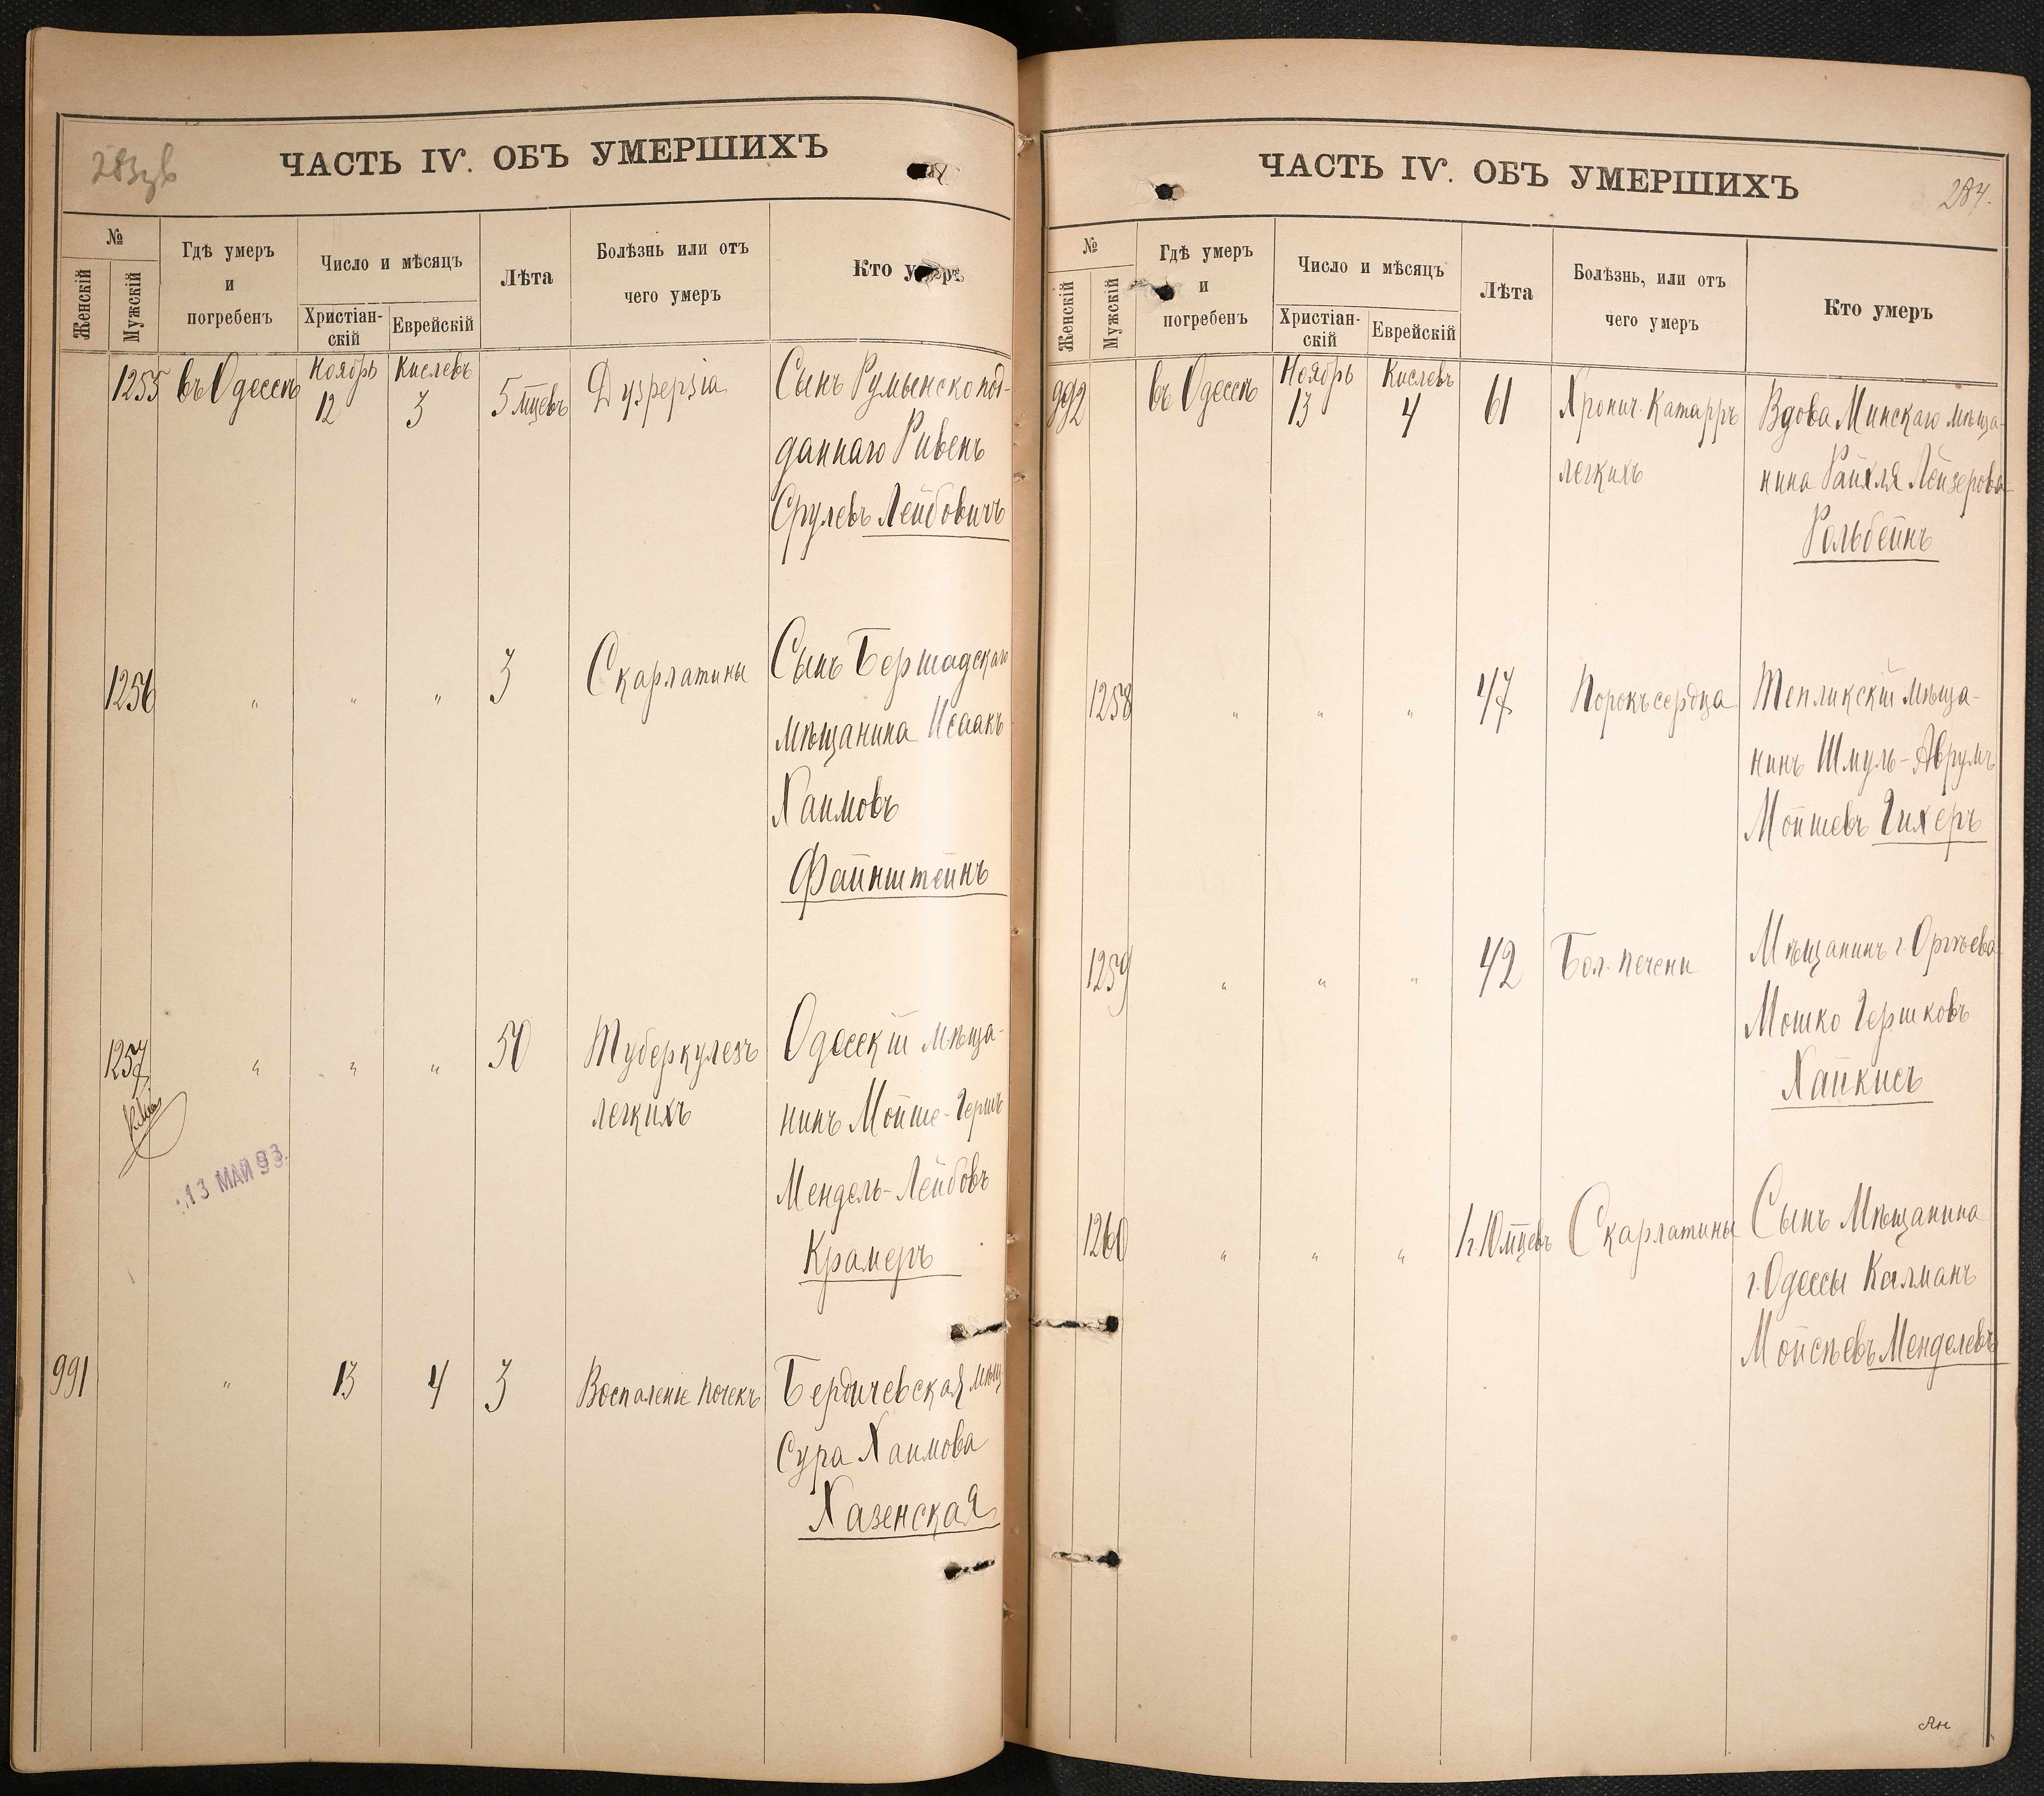 283 об
ЧАСТЬ IV. ОБЪ УМЕРШИХЪ
№
Женскій
Мужскій
Гдѣ умеръ
и
погребенъ
Число и мѣсяцъ
Христіан-
скій
Еврейскій
Лѣта
Болѣзнь или отъ
чего умеръ
Кто умеръ
1255 въ Одессѣ Ноябрь 12 Кислевъ 3 5 мцевъ Dyspepsia Сынъ Румынско под-
даннаго Ривенъ
Срулевъ Лейбовичъ
1256 " " " 3 Скарлатины Сынъ Бершадскаго
мѣщанина Исаакъ
Хаимовъ
Файнштейнъ
1257 " " " 50 Туберкулезъ Одесскій мѣща-
легкихъ нинъ Мойше-Гершъ
Мендель-Лейбовъ
Крамеръ
13 МАЙ 93.
991 " 13 4 3 Воспаленіе почекъ Бердичевская мѣщ
Сура Хаимова
Хазенская
ЧАСТЬ IV. ОБЪ УМЕРШИХЪ
284.
№
Женскій
Мужскій
Гдѣ умеръ
и
погребенъ
Число и мѣсяцъ
Христіан-
скій
Еврейскій
Лѣта
Болѣзнь, или отъ
чего умеръ
Кто умеръ
992 въ Одессѣ Ноябрь 13 Кислевъ 4 61 Хронич. Катарръ Вдова Минскаго мѣща-
легкихъ нина Райхля Лейзерова
Рольбейнъ
1258 " " " 47 Порокъ сердца Тепликскій мѣща-
нинъ Шмуль-Аврумъ
Мойшевъ Гихеръ
1259 " " " 42 Бол. печени Мѣщанинъ г. Оргѣева
Мошко Гершковъ
Хайкисъ
1260 " " " 1 г. 10 мцевъ Скарлатины Сынъ Мѣщанина
г. Одессы Калманъ
Мойсѣевъ Менделевъ